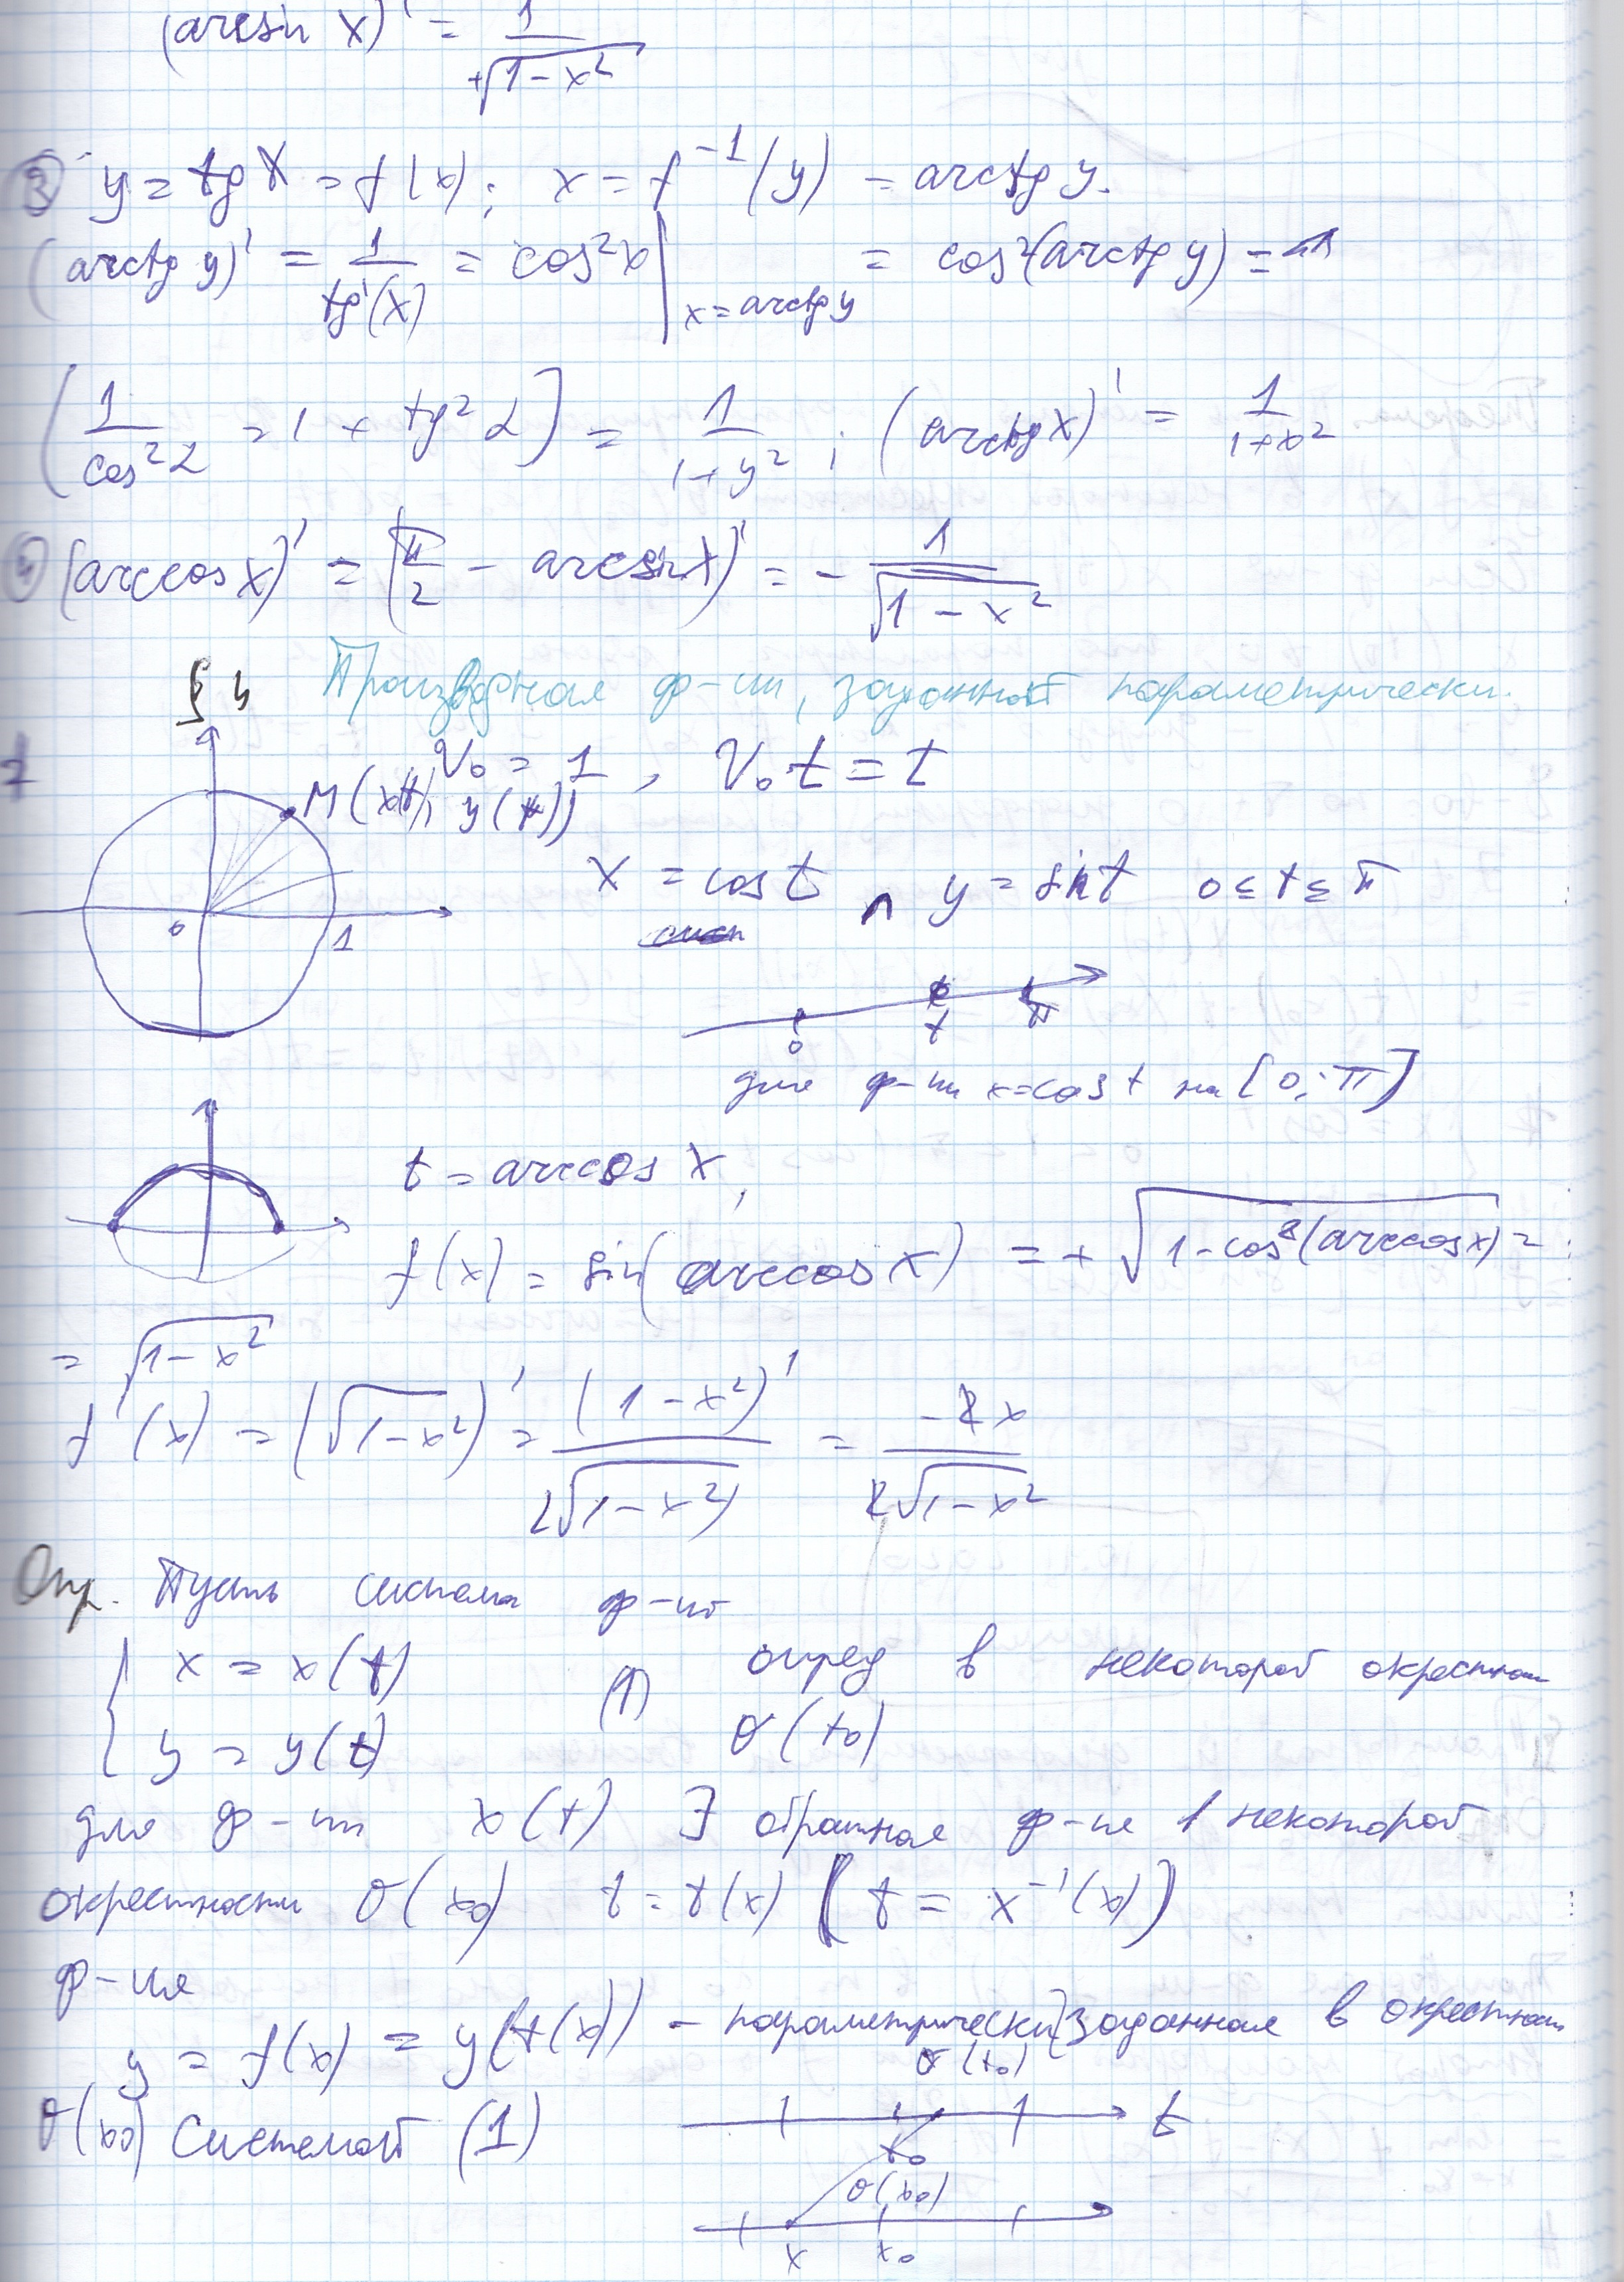 (arcsin x)' = 1/+√(1-x²)
③ y = tg x = f(x); x = f⁻¹(y) = arctg y.
(arctg y)' = 1/tg'(x) = cos²x | x = arctg y = cos²(arctg y) =
(1/cos²α = 1 + tg²α) = 1/(1+y²); (arctg x)' = 1/(1+x²)
④ (arccos x)' = (π/2 - arcsin x)' = - 1/√(1-x²)
§ 4 Производная ф-ии, заданной параметрически.
V₀ = 1, V₀t = t
M(x(t), y(t))
x = cos t ∧ y = sin t 0 ≤ t ≤ π
0 1
0 t π
для ф-ии x = cos t на [0; π]
t = arccos x,
f(x) = sin(arccos x) = + √(1-cos²(arccos x)) =
= √(1-x²)
f'(x) = (√(1-x²))' = (1-x²)'/2√(1-x²) = -2x/2√(1-x²)
Опр. Пусть система ф-ий
{ x = x(t) (1) опред в некоторой окрестности
y = y(t) σ(t₀)
для ф-ии x(t) ∃ обратная ф-ия в некоторой
окрестности σ(x₀) t = t(x) (t = x⁻¹(x))
ф-ия
y = f(x) = y(t(x)) - параметрически заданная в окрестности
σ(x₀) системой (1)
σ(t₀)
t₀ t
σ(x₀)
x x₀